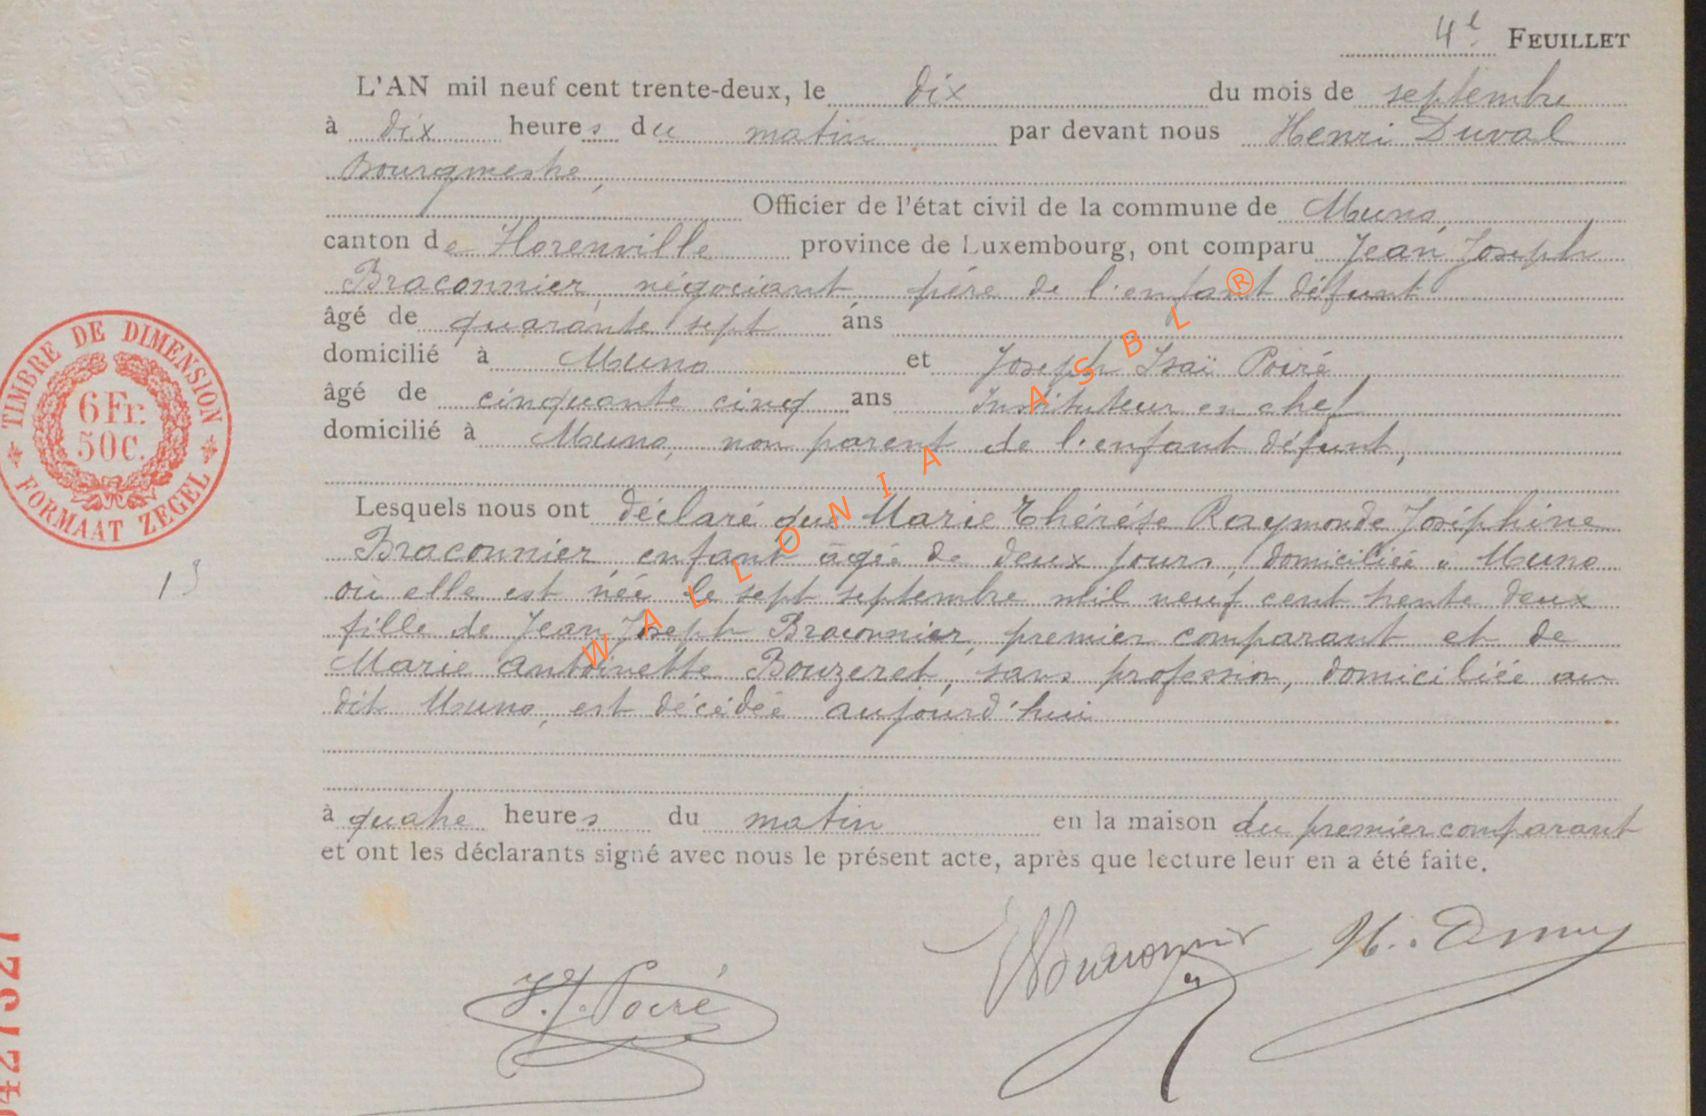 4e FEUILLET
L'AN mil neuf cent trente-deux, le dix du mois de septembre
à dix heures du matin par devant nous Henri Duval
Bourgmestre,
Officier de l'état civil de la commune de Muno,
canton de Florenville province de Luxembourg, ont comparu Jean Joseph
Braconnier, négociant, père de l'enfant défunt
âgé de quarante sept ans
domicilié à Muno et Joseph Isaï Poiré
âgé de cinquante cinq ans Instituteur en chef
domicilié à Muno, non parent de l'enfant défunt,
Lesquels nous ont déclaré que Marie Thérèse Raymonde Joséphine
Braconnier, enfant âgée de deux jours, domiciliée à Muno
où elle est née le sept septembre mil neuf cent trente deux
fille de Jean Joseph Braconnier, premier comparant et de
Marie Antoinette Bouzeret, sans profession, domiciliée au
dit Muno, est décédée aujourd'hui
à quatre heures du matin en la maison du premier comparant
et ont les déclarants signé avec nous le présent acte, après que lecture leur en a été faite.
J. I. Poiré
Braconnier
H. Duval
TIMBRE DE DIMENSION
6 Fr.
50 C.
FORMAAT ZEGEL
13
427327
WALLONIA ASBL ®